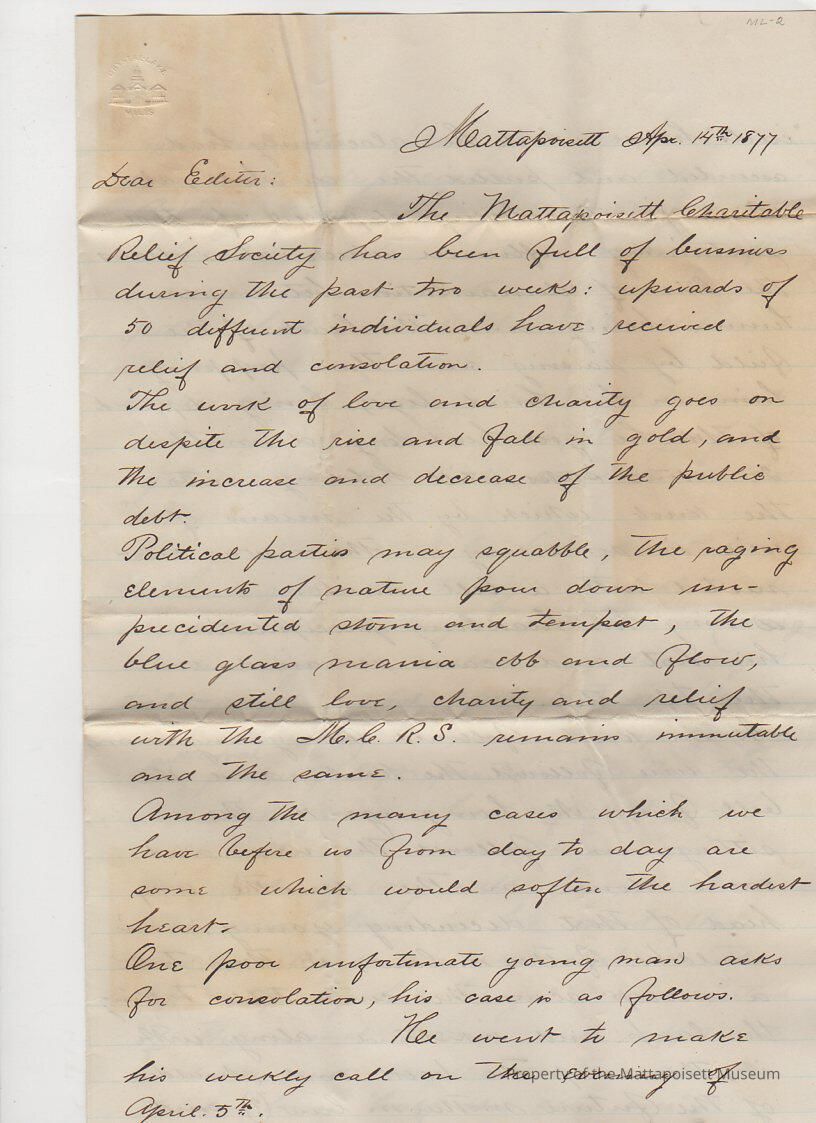 ML-2
MILLS
Mattapoisett Apr. 14th 1877
Dear Editor:
The Mattapoisett Charitable
Relief Society has been full of business
during the past two weeks: upwards of
50 different individuals have received
relief and consolation.
The work of love and charity goes on
despite the rise and fall in gold, and
the increase and decrease of the public
debt.
Political parties may squabble, the raging
elements of nature pour down un-
precidented storm and tempest, the
blue glass mania ebb and flow,
and still love, charity and relief
with the M.C.R.S. remains immutable
and the same.
Among the many cases which we
have before us from day to day are
some which would soften the hardest
heart.
One poor unfortunate young man asks
for consolation, his case is as follows.
He went to make
his weekly call on the evening of
Property of the Mattapoisett Museum
April. 5th.